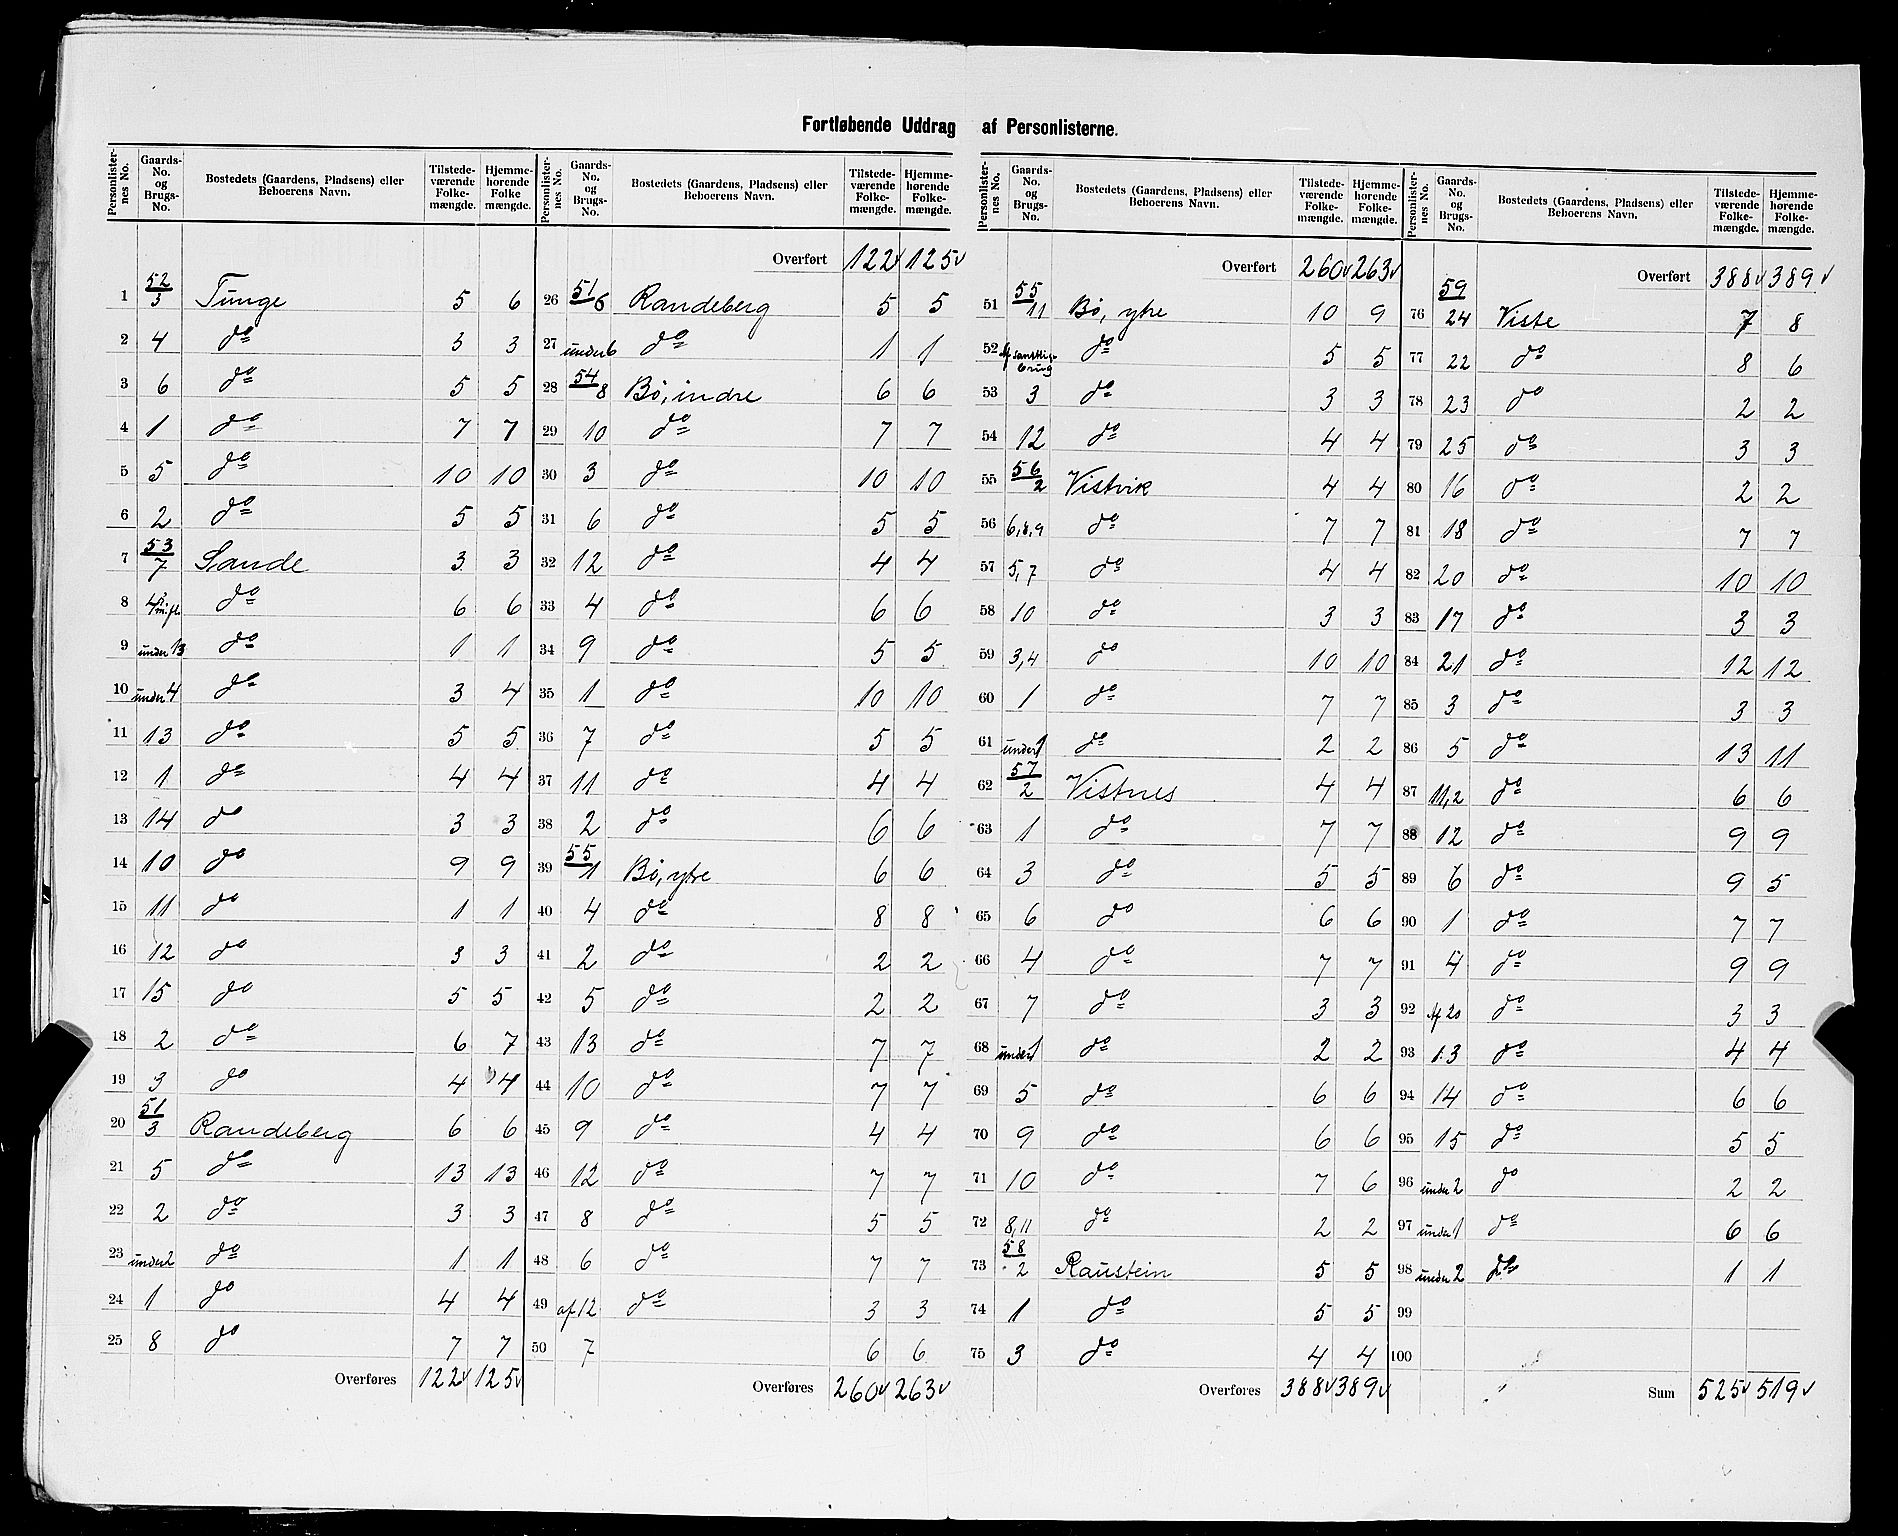 Fortløbende Uddrag af Personlisterne.
Personlisternes No. | Gaards-No. og Brugs-No. | Bostedets (Gaardens, Pladsens) eller Beboerens Navn. | Tilstedeværende Folkemængde. | Hjemmehørende Folkemængde.
1 52/3 Tunge 5 6
2 4 do 3 3
3 6 do 5 5
4 1 do 7 7
5 5 do 10 10
6 2 do 5 5
7 53/7 Sande 3 3
8 4 do 6 6
9 under 13 do 1 1
10 under 4 do 3 4
11 13 do 5 5
12 1 do 4 4
13 14 do 3 3
14 10 do 9 9
15 11 do 1 1
16 12 do 3 3
17 15 do 5 5
18 2 do 6 7
19 3 do 4 4
20 51/3 Randeberg 6 6
21 5 do 13 13
22 2 do 3 3
23 under 2 do 1 1
24 1 do 4 4
25 8 do 7 7
Overføres 122 125
Personlisternes No. | Gaards-No. og Brugs-No. | Bostedets (Gaardens, Pladsens) eller Beboerens Navn. | Tilstedeværende Folkemængde. | Hjemmehørende Folkemængde.
Overført 122 125
26 51/6 Randeberg 5 5
27 under 6 do 1 1
28 54/8 Bø, indre 6 6
29 10 do 7 7
30 3 do 10 10
31 6 do 5 5
32 12 do 4 4
33 4 do 6 6
34 9 do 5 5
35 1 do 10 10
36 7 do 5 5
37 11 do 4 4
38 2 do 6 6
39 55/1 Bø, ytre 6 6
40 4 do 8 8
41 2 do 2 2
42 5 do 2 2
43 13 do 7 7
44 10 do 7 7
45 9 do 4 4
46 12 do 7 7
47 8 do 5 5
48 6 do 7 7
49 af 12 do 3 3
50 7 6 6
Overføres 260 263
Personlisternes No. | Gaards-No. og Brugs-No. | Bostedets (Gaardens, Pladsens) eller Beboerens Navn. | Tilstedeværende Folkemængde. | Hjemmehørende Folkemængde.
Overført 260 263
51 55/11 Bø, ytre 10 9
52 Af samtlige brug do 5 5
53 3 do 3 3
54 12 do 4 4
55 56/2 Vistvik 4 4
56 6,8,9 do 7 7
57 5,7 do 4 4
58 10 do 3 3
59 3,4 do 10 10
60 1 do 7 7
61 under 1 do 2 2
62 57/2 Vistnes 4 4
63 1 do 7 7
64 3 do 5 5
65 6 do 6 6
66 4 do 7 7
67 7 do 3 3
68 under 1 do 2 2
69 5 do 6 6
70 9 do 6 6
71 10 do 7 6
72 8,11 do 2 2
73 58/2 Raustein 5 5
74 1 do 5 5
75 3 do 4 4
Overføres 388 389
Personlisternes No. | Gaards-No. og Brugs-No. | Bostedets (Gaardens, Pladsens) eller Beboerens Navn. | Tilstedeværende Folkemængde. | Hjemmehørende Folkemængde.
Overført 388 389
76 59/24 Viste 7 8
77 22 do 8 6
78 23 do 2 2
79 25 do 3 3
80 16 do 2 2
81 18 do 7 7
82 20 do 10 10
83 17 do 3 3
84 21 do 12 12
85 3 do 3 3
86 5 do 13 11
87 11,2 do 6 6
88 12 do 9 9
89 6 do 9 5
90 1 do 7 7
91 4 do 9 9
92 Af 20 do 3 3
93 13 do 4 4
94 14 do 6 6
95 15 do 5 5
96 under 2 do 2 2
97 under 1 do 6 6
98 under 2 do 1 1
99
100
Sum 525 519